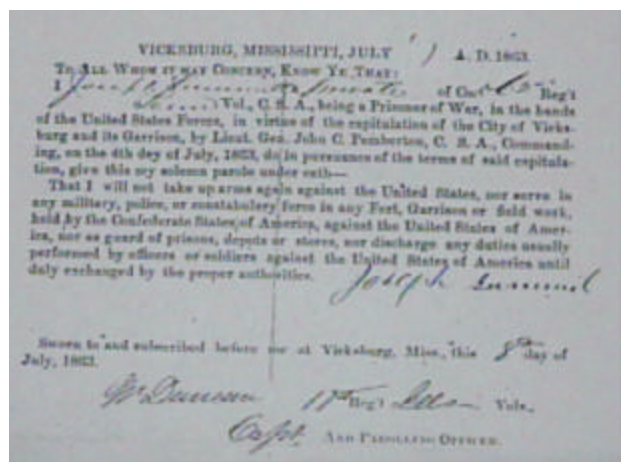 VICKSBURG, MISSISSIPPI, JULY A. D. 1863.
TO ALL WHOM IT MAY CONCERN, KNOW YE THAT:
I Joseph a Private of Co. Reg't
Vol., C. S. A., being a Prisoner of War, in the hands
of the United States Forces, in virtue of the capitulation of the City of Vicks-
burg and its Garrison, by Lieut. Gen. John C. Pemberton, C. S. A., Command-
ing, on the 4th day of July, 1863, do in pursuance of the terms of said capitula-
tion, give this my solemn parole under oath—
That I will not take up arms again against the United States, nor serve in
any military, police, or constabulery force in any Fort, Garrison or field work,
held by the Confederate States of America, against the United States of Amer-
ica, nor as guard of prisons, depots or stores, nor discharge any duties usually
performed by officers or soldiers against the United States of America until
duly exchanged by the proper authorities.
Joseph
Sworn to and subscribed before me at Vicksburg, Miss., this 8th day of
July, 1863.
Duncan Reg't Vols.,
Capt. AND PAROLLING OFFICER.